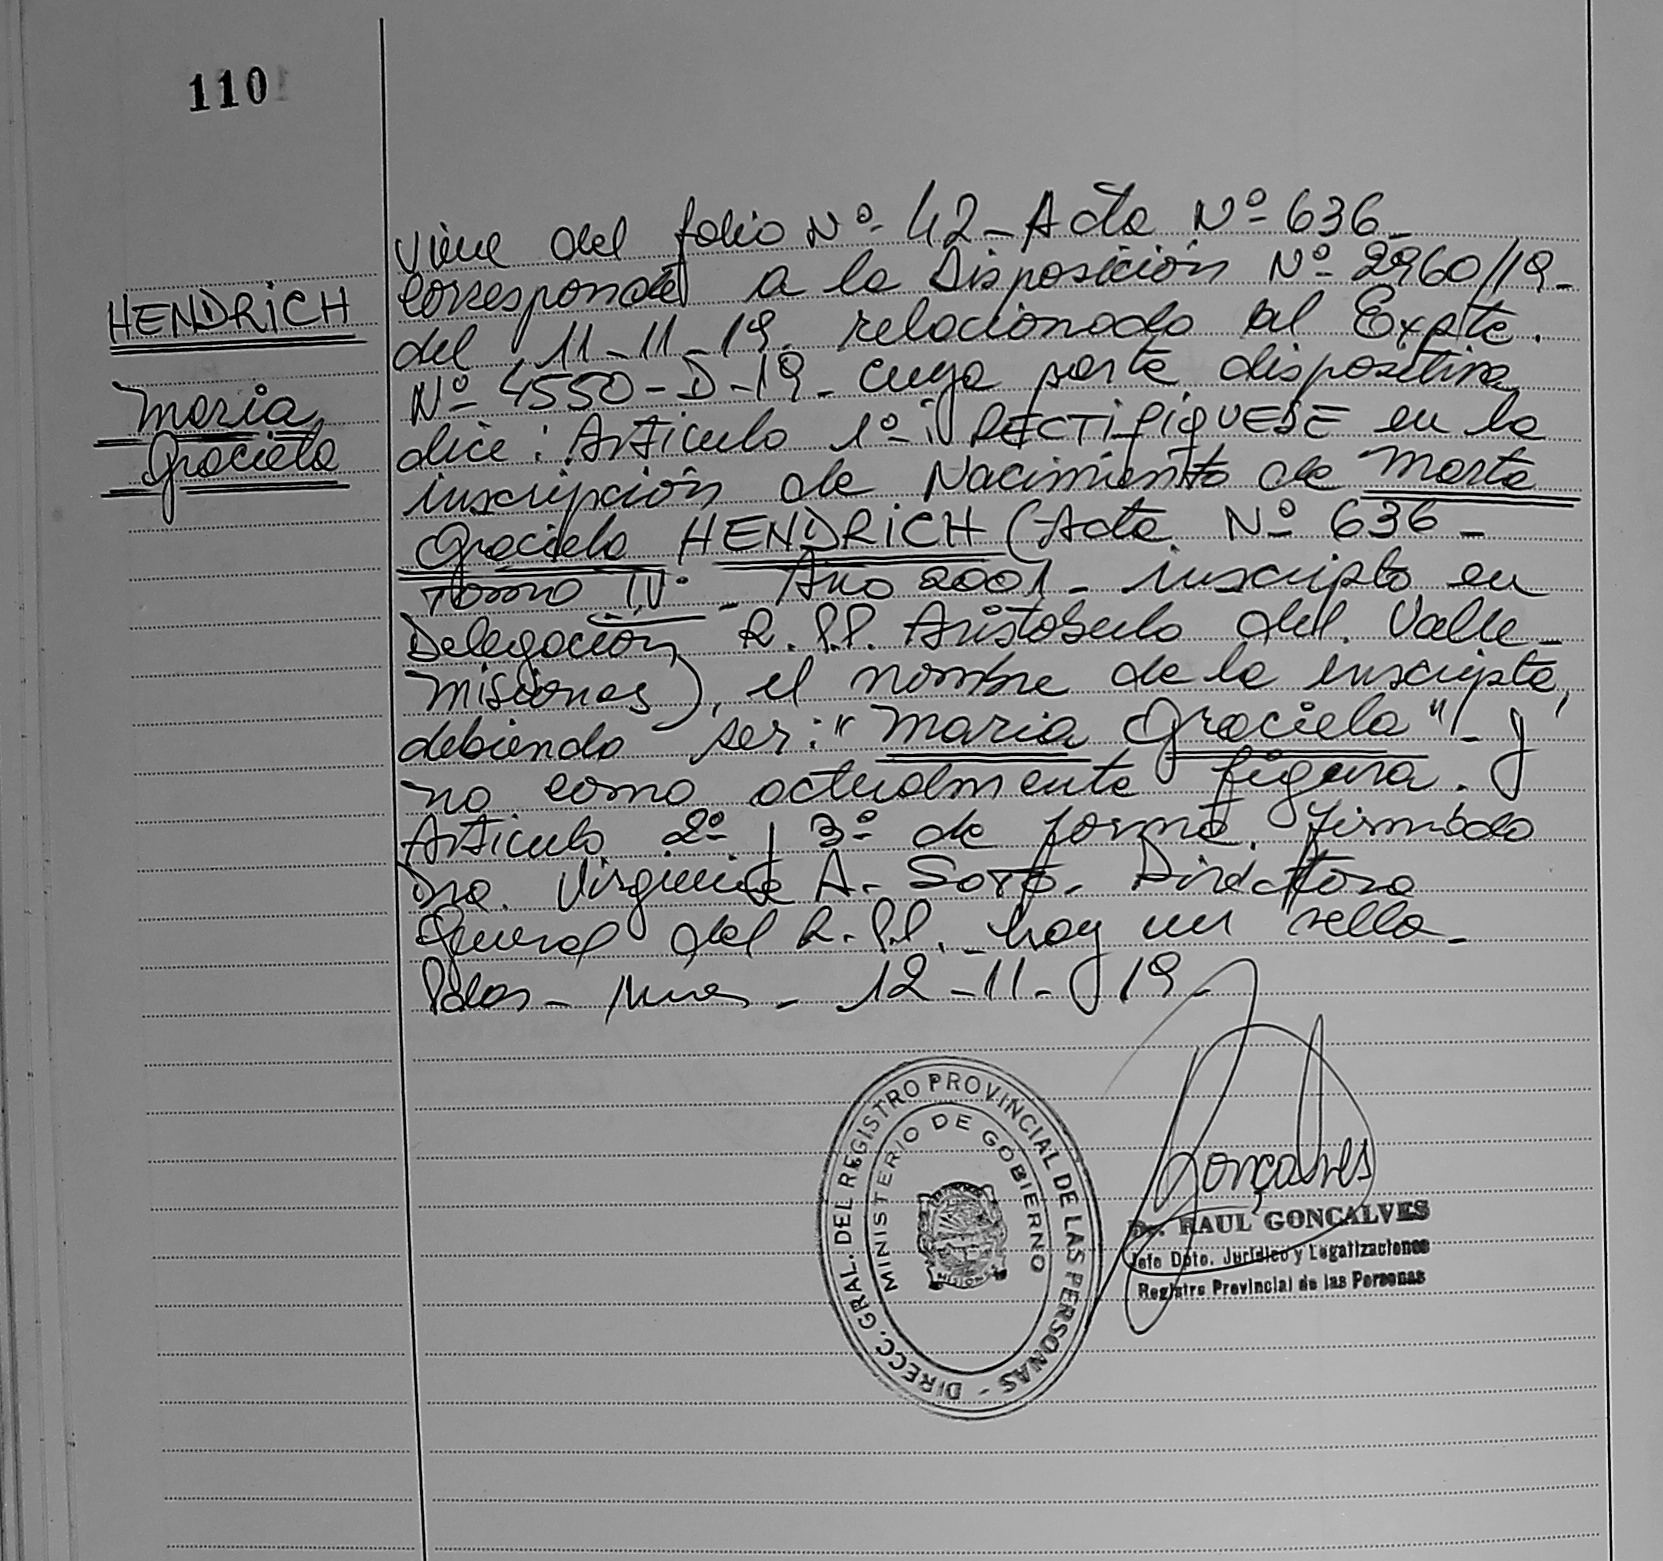 110
HENDRICH
Maria
Graciela
Viene del folio Nº 42 - Acta Nº 636 -
Corresponde a la Disposición Nº 2960/19 -
del 11-11-19 relacionado al Expte.
Nº 4550-D-19 - cuya parte dispositiva
dice: Articulo 1º: RECTIFIQUESE en la
inscripción de Nacimiento de Marta
Graciela HENDRICH (Acta Nº 636 -
Tomo IVº - Año 2001 - inscripto en
Delegación R.P.P. Aristobulo del Valle -
Misiones), el nombre de la inscripta,
debiendo ser: "Maria Graciela" - y
no como actualmente figura.
Articulo 2º y 3º de forma. Firmado
Dra. Virginia A. Soto. Directora
General del R.P.P. - hay un sello -
Pdas - Mnes - 12-11-19 -
DIRECC. GRAL. DEL REGISTRO PROVINCIAL DE LAS PERSONAS -
MINISTERIO DE GOBIERNO
MISIONES
Gonçalves
Dr. RAUL GONCALVES
Jefe Dpto. Jurídico y Legalizaciones
Registro Provincial de las Personas